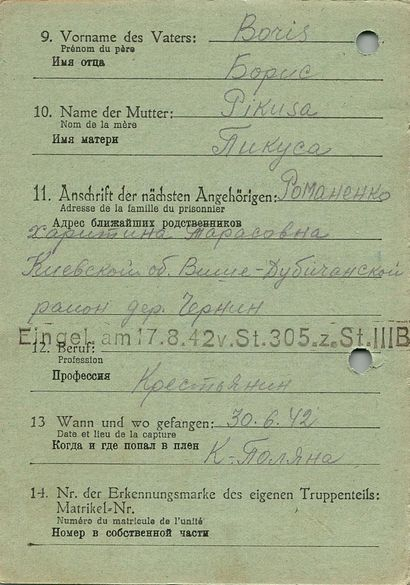 9. Vorname des Vaters: Boris
Prénom du père
Имя отца
Борис
10. Name der Mutter: Pikusa
Nom de la mère
Имя матери
Пикуса
11. Anschrift der nächsten Angehörigen: Романенко
Adresse de la famille du prisonnier
Адрес ближайших родственников
Харитина Тарасовна
Киевской об. Више-Дубичанской
район дер. Чернин
Eingel. am 17.8.42 v. St. 305. z. St. III B
12. Beruf:
Profession
Профессия
Крестьянин
13 Wann und wo gefangen: 30.6.42
Date et lieu de la capture
Когда и где попал в плен
К-Поляна
14. Nr. der Erkennungsmarke des eigenen Truppenteils:
Matrikel-Nr.
Numéro du matricule de l'unité
Номер в собственной части